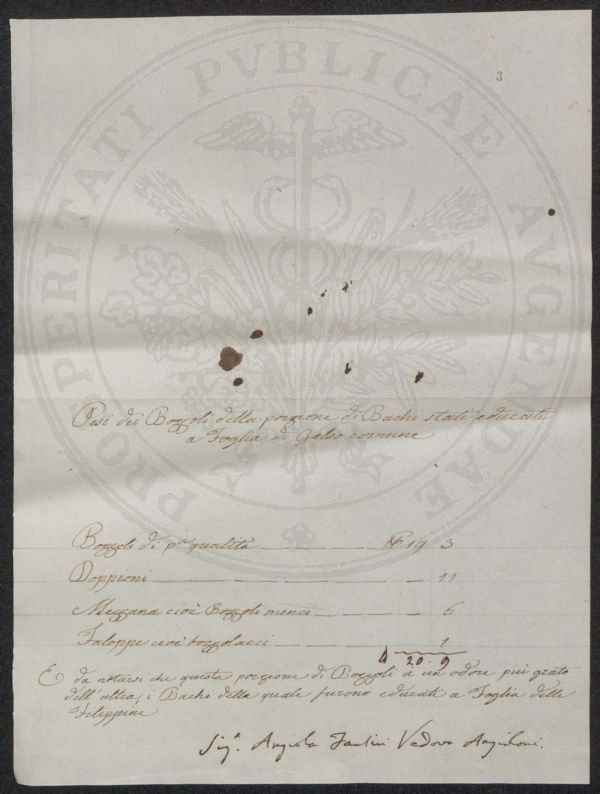 3
PROSPERITATI PVBLICAE AVGENDAE
Pesi dei Bozzoli della porzione di Bachi stati educati
a Foglia di Gelso comune
Bozzoli di pª qualità 19 3
Doppioni 11
Mezzana cioè Bozzoli menci 6
Faloppe cioè bozzolacci 1
20.9
E da notarsi che questa porzione di Bozzoli à un odore più grato
dell'altra, i Bachi della quale furono educati a Foglia delle
Filippine
Sigª. Angiola Fantini Vedova